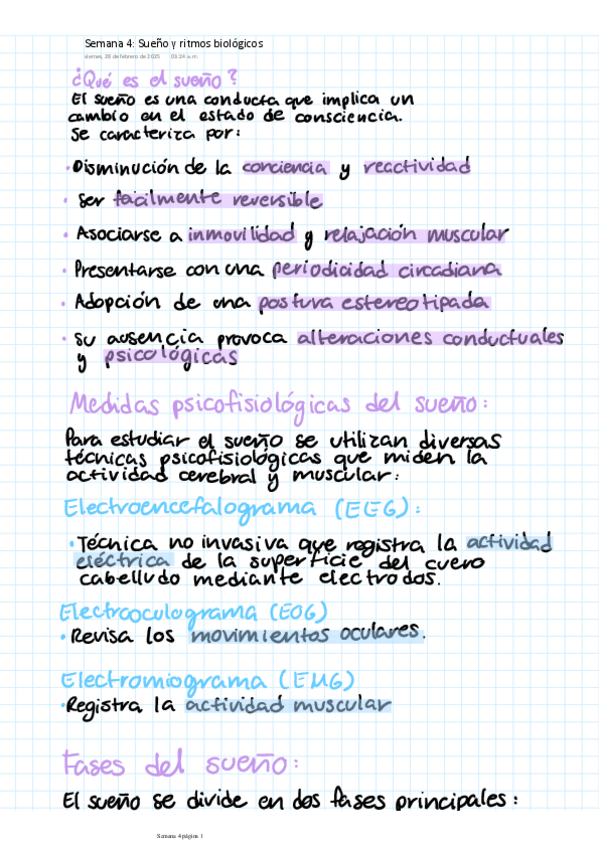 Semana 4: Sueño y ritmos biológicos
viernes, 28 de febrero de 2025 03:24 a.m.
¿Qué es el sueño?
El sueño es una conducta que implica un
cambio en el estado de consciencia.
Se caracteriza por:
• Disminución de la conciencia y reactividad
• Ser facilmente reversible
• Asociarse a inmovilidad y relajación muscular
• Presentarse con una periodicidad circadiana
• Adopción de una postura estereotipada
• Su ausencia provoca alteraciones conductuales
y psicológicas
Medidas psicofisiológicas del sueño:
Para estudiar el sueño se utilizan diversas
técnicas psicofisiológicas que miden la
actividad cerebral y muscular:
Electroencefalograma (EEG):
• Técnica no invasiva que registra la actividad
eléctrica de la superficie del cuero
cabelludo mediante electrodos.
Electrooculograma (EOG)
• Revisa los movimientos oculares.
Electromiograma (EMG)
• Registra la actividad muscular
Fases del sueño:
El sueño se divide en dos fases principales:
Semana 4 página 1